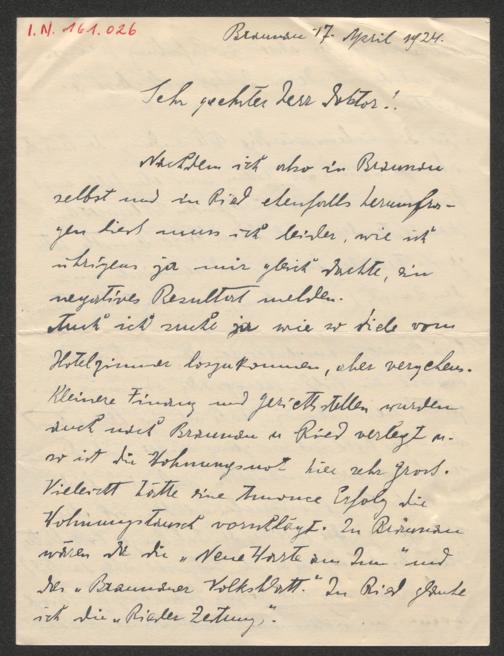 I.N. 161.026
Braunau 17. April 1924.
Sehr geehrter Herr Doktor!
Nachdem ich also in Braunau
selbst und in Ried ebenfalls herumfra-
gen liess muss ich leider, wie ich
übrigens ja mir gleich dachte, ein
negatives Resultat melden.
Auch ich suche ja wie so viele vom
Hotelzimmer loszukommen, aber vergebens.
Kleinere Finanz und Gerichtsstellen wurden
auch nach Braunau u Ried verlegt u.
so ist die Wohnungsnot hier sehr gross.
Vieleicht hätte eine Annonce Erfolg die
Wohnungstausch vorschlägt. In Braunau
wären da die „Neue Warte am Inn" und
das „Braunauer Volksblatt." In Ried glaube
ich die „Rieder Zeitung".